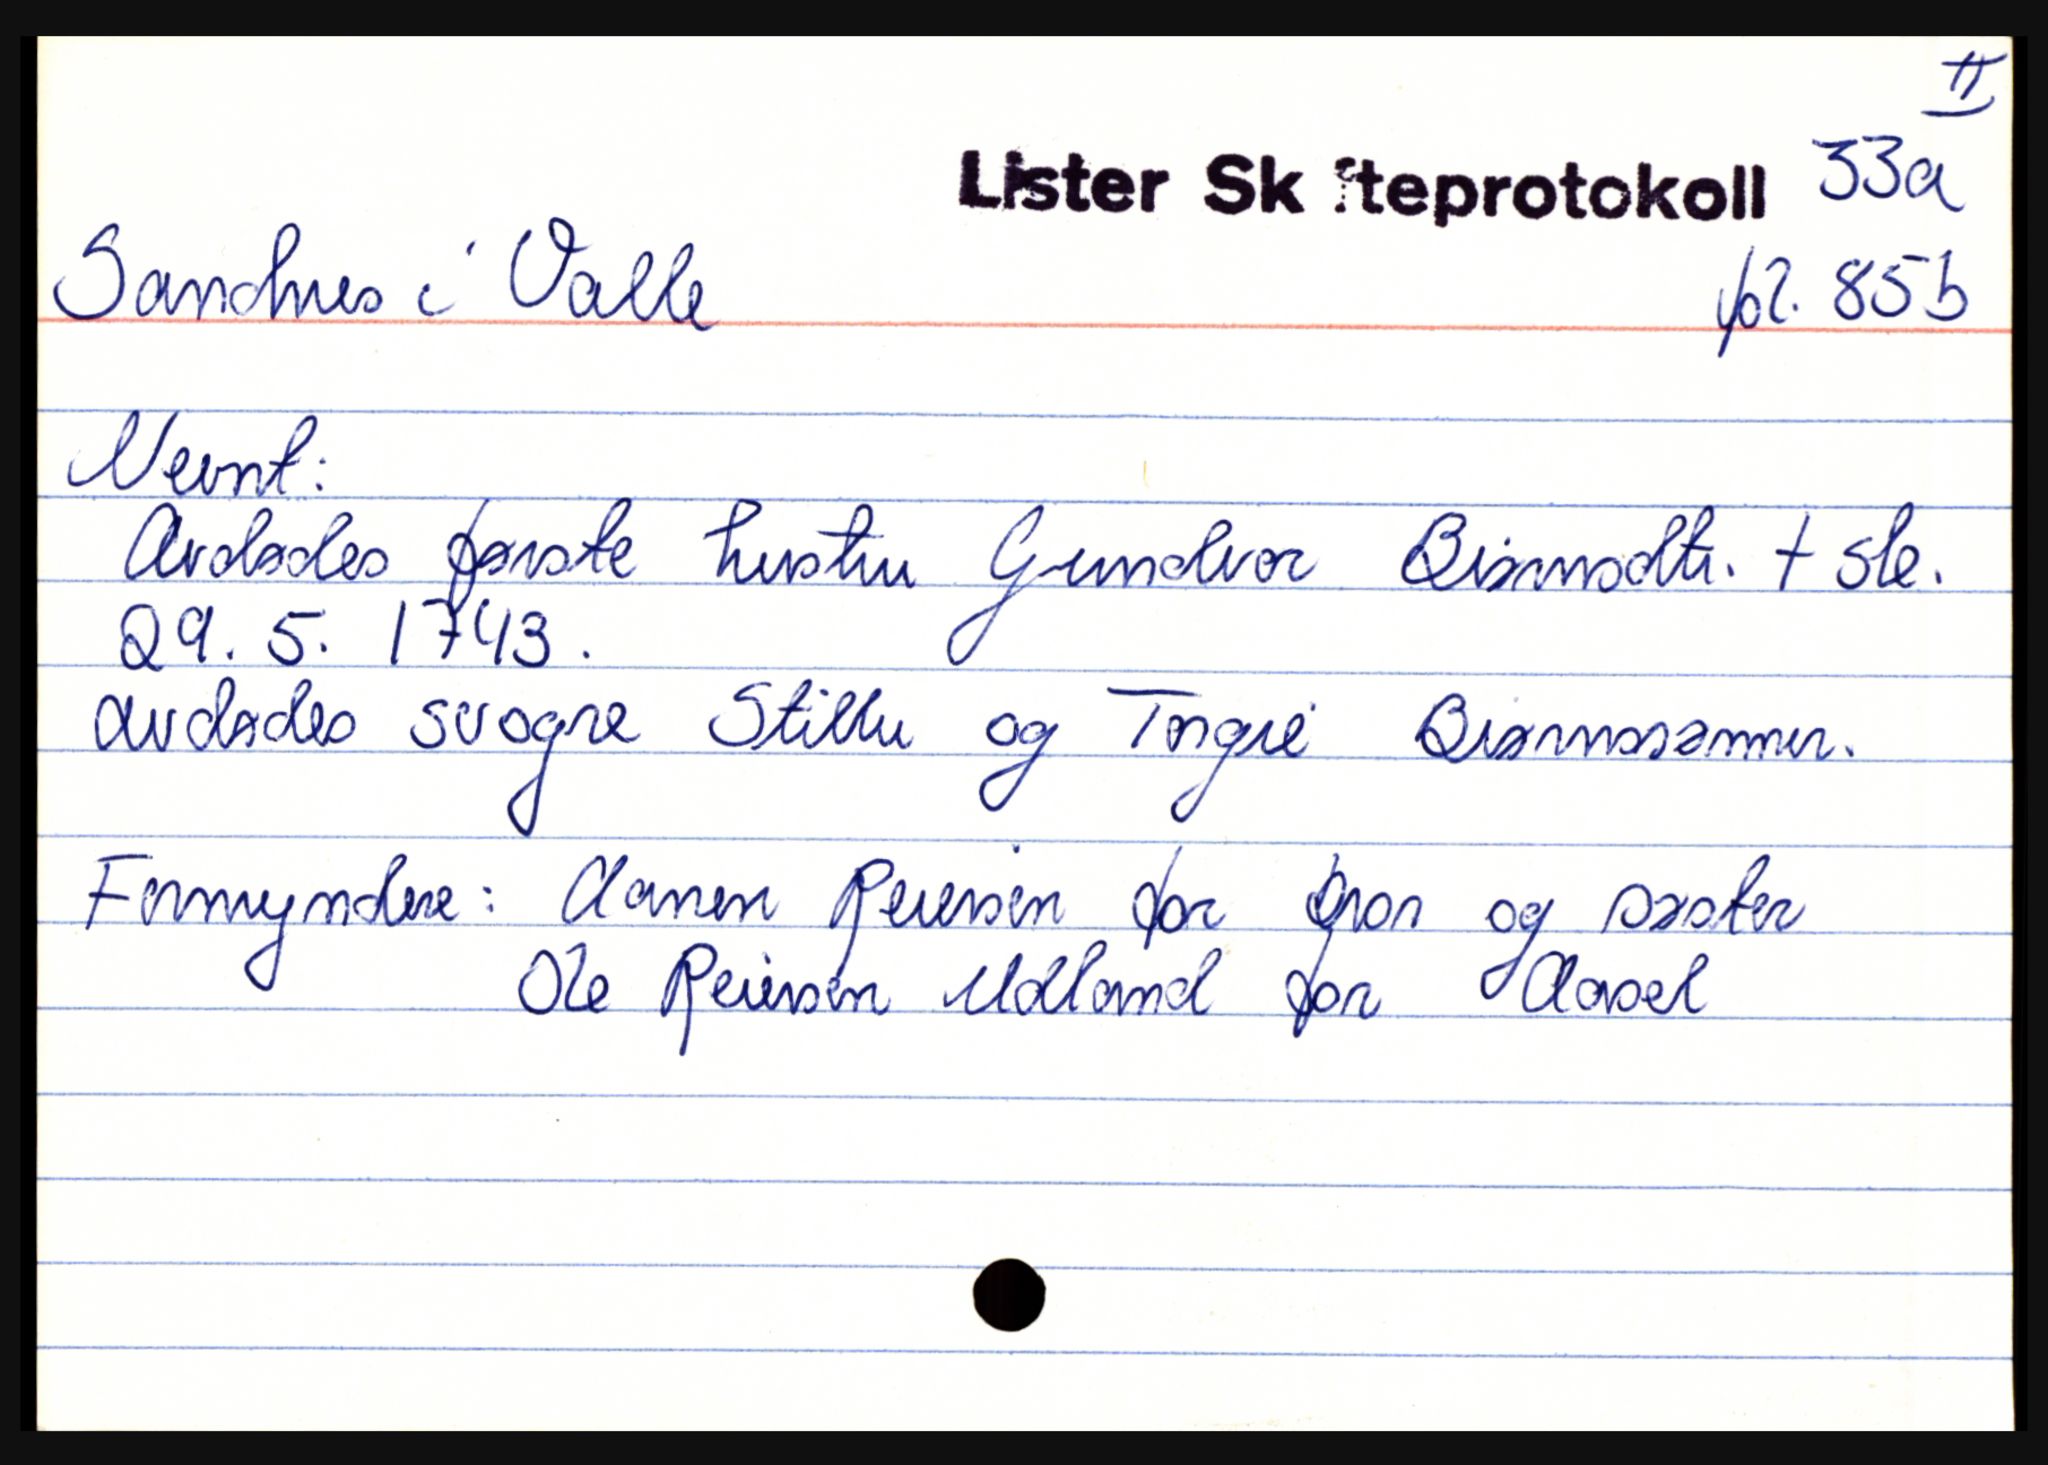 II
Lister Skifteprotokoll 33a
Sandnes i Valle fol. 85b
Nevnt:
Avdødes første hustru Gundvor Biørnsdtr. + ste.
29. 5. 1743.
avdødes svogre Stillu og Torgie Biørnssønner.
Formyndere: Aanen Reiersen for bror og søster
Ole Reiersen Udland for Aasel